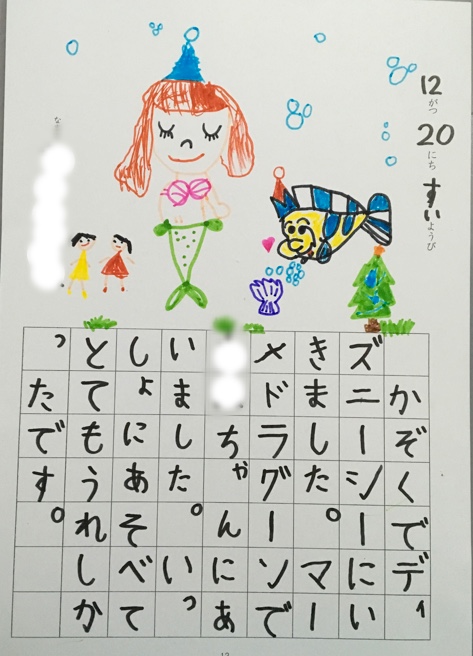 12がつ20にちすいようび
な
かぞくでディ
ズニーシーにい
きました。マー
メドラグーソで
ちゃんにあ
いました。いっ
しょにあそべて
とてもうれしか
ったです。